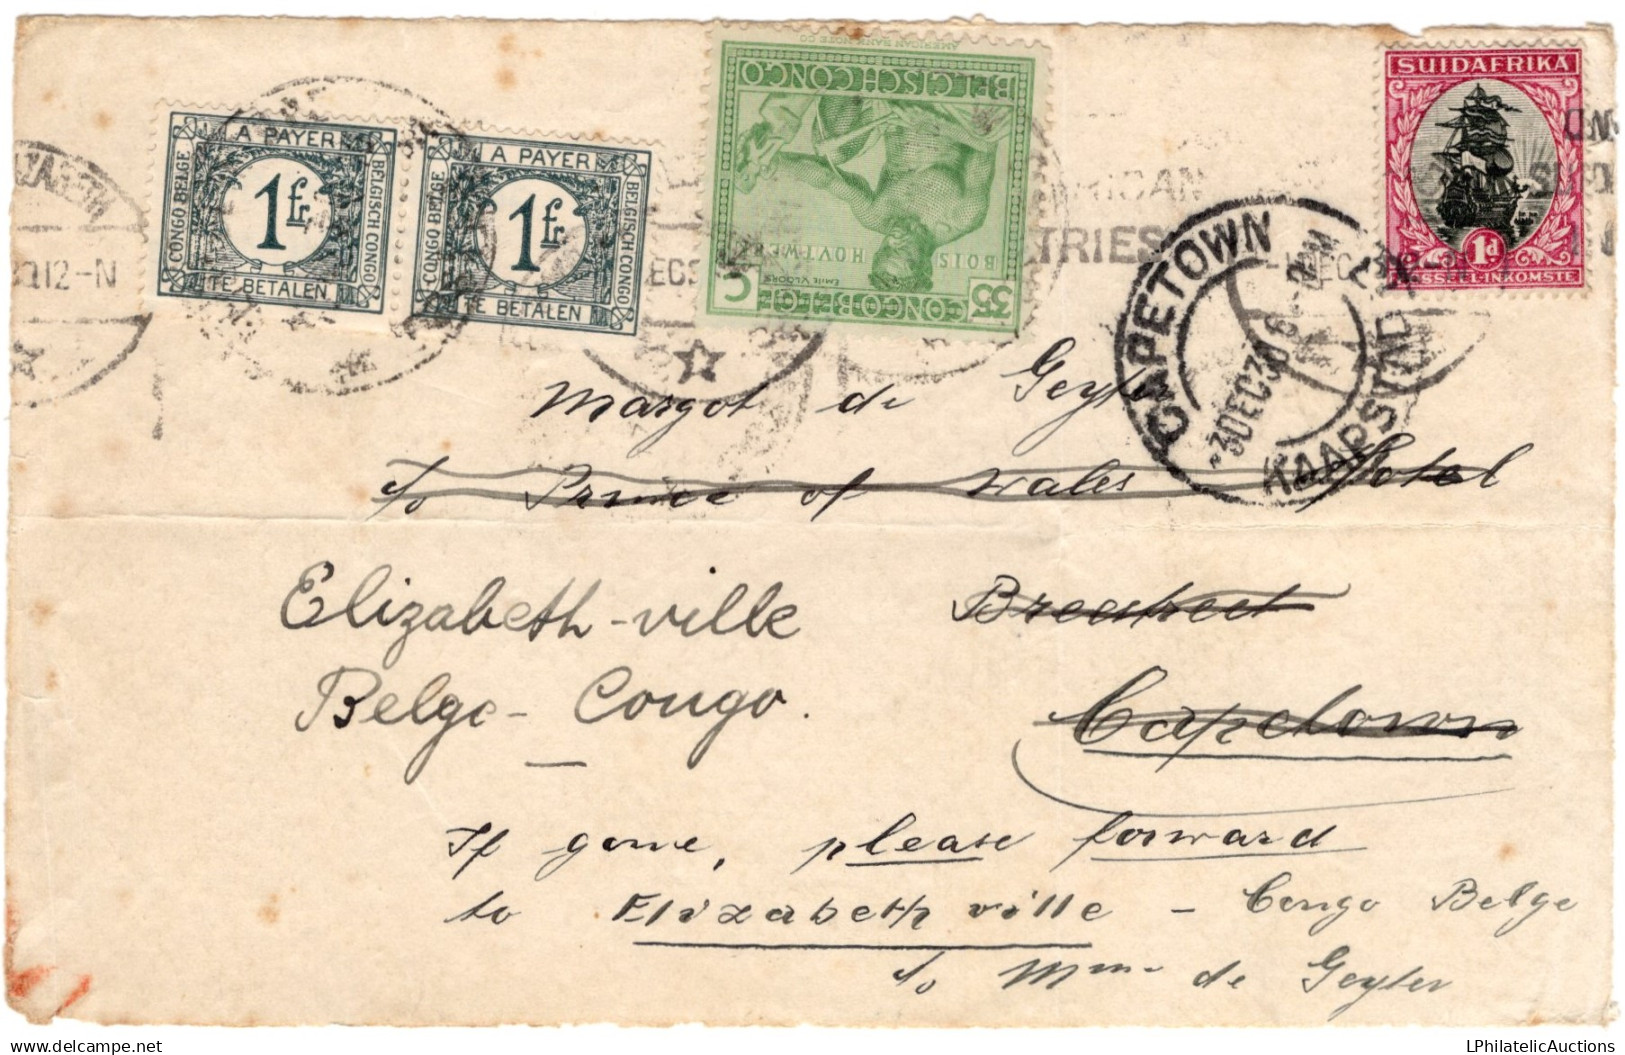 A PAYER
CONGO BELGE
1 fr.
BELGISCH CONGO
TE BETALEN
A PAYER
CONGO BELGE
1 fr.
BELGISCH CONGO
TE BETALEN
AMERICAN BANK NOTE CO
BELGISCH CONGO
BOIS
EMILE VLOORS
35 C
CONGO BELGE
SUIDAFRIKA
1d
CAPETOWN
3 DEC 30
KAAPSTAD
12-N
TRIES
Margot de Geyter
c/o Prince of Wales Hotel
Breestreet
Capetown
Elizabeth-ville
Belge-Congo.
If gone, please forward
to Elizabethville - Congo Belge
c/o Mme de Geyter
www.delcampe.net
LPhilatelicAuctions